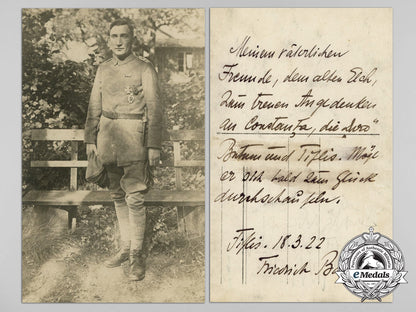 Meinem väterlichen
Freunde, dem alten Elch,
zum treuen Angedenken
an Constanţa, die „Dero"
Batum und Tiflis. Möge
er sich bald zum Glück
durchschaufeln.
Tiflis. 18.3.22
Friedrich
eMedals